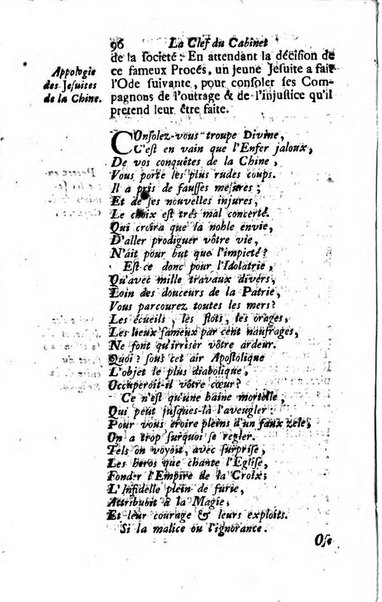 96 La Clef du Cabinet
Appologie
des Jesuites
de la Chine.
de la societé: En attendant la décision de
ce fameux Procés, un jeune Jesuite a fait
l'Ode suivante, pour consoler ses Com-
pagnons de l'outrage & de l'injustice qu'il
pretend leur être faite.
COnsolez-vous troupe Divine,
C'est en vain que l'Enfer jaloux,
De vos conquêtes de la Chine,
Vous porte les plus rudes coups.
Il a pris de fausses mesures;
Et de ses nouvelles injures,
Le choix est trés mal concerté.
Qui croira que la noble envie,
D'aller prodiguer vôtre vie,
N'ait pour but que l'impieté?
Est-ce donc pour l'Idolatrie,
Qu'avec mille travaux divers,
Loin des douceurs de la Patrie,
Vous parcourez toutes les mers?
Les écueils, les flots, les orages,
Les lieux fameux par cent naufrages,
Ne font qu'irriser vôtre ardeur.
Quoi? sous cet air Apostolique
L'objet le plus diabolique,
Occuperoit-il vôtre cœur?
Ce n'est qu'une haine mortelle,
Qui peut jusques-là l'aveugler:
Pour vous croire pleins d'un faux zéle,
On a trop surquoi se regler.
Tels on voyoit, avec surprise,
Les heros que chante l'Eglise,
Fonder l'Empire de la Croix;
L'Infidelle plein de furie,
Attribuoit à la Magie,
Et leur courage & leurs exploits.
Si la malice ou l'ignorance.
Ose